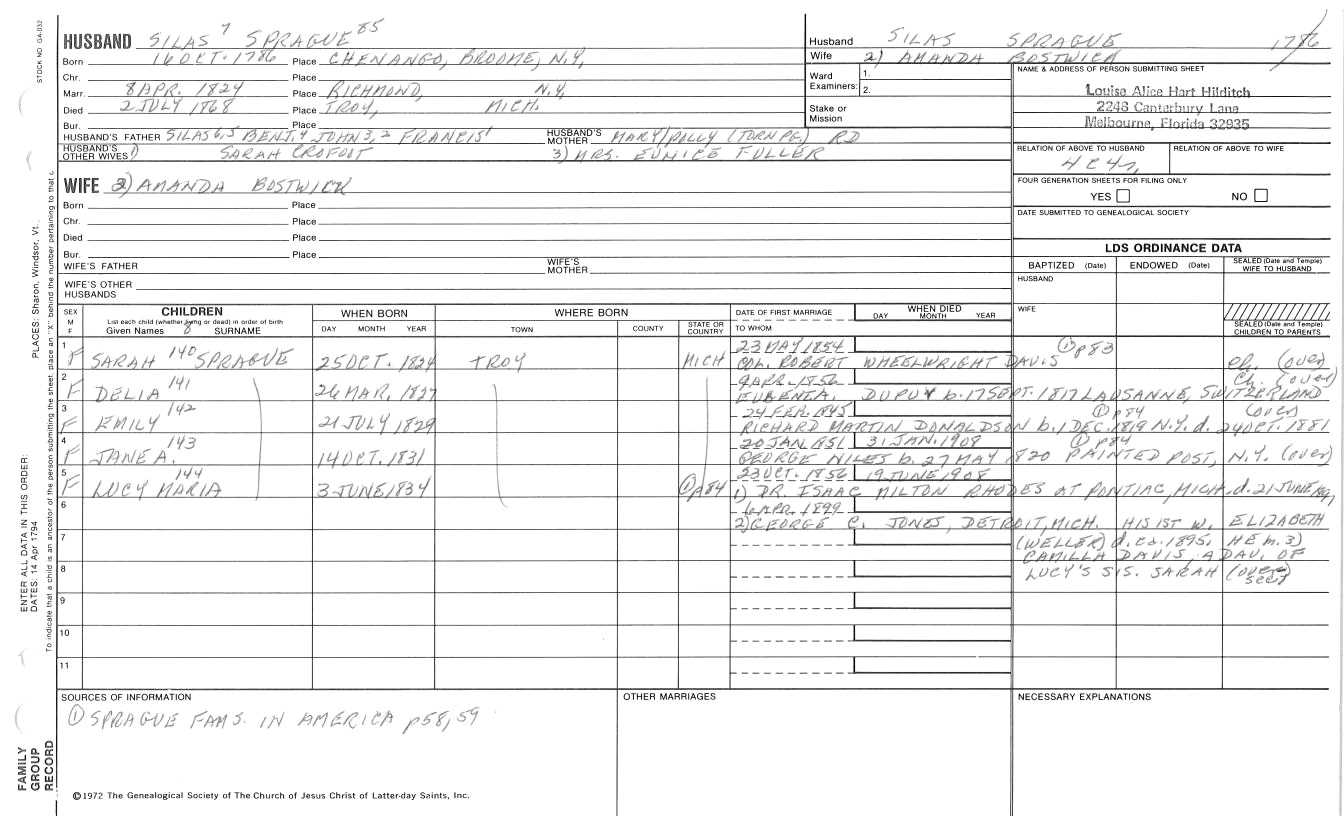 STOCK NO. GA-032
HUSBAND SILAS 7 SPRAGUE 85
Born 16 OCT. 1786 Place CHENANGO, BROOME, N.Y.
Chr. Place
Marr. 8 APR. 1824 Place RICHMOND, N.Y.
Died 2 JULY 1868 Place TROY, MICH.
Bur. Place
HUSBAND'S FATHER SILAS 6,5 BENJ, 4 JOHN 3,2 FRANCIS 1 HUSBAND'S MOTHER MARY/POLLY (TORN PG.) RD
HUSBAND'S OTHER WIVES 1) SARAH CROFOOT 3) MRS. EUNICE FULLER
Husband SILAS SPRAGUE 1786
Wife 2) AMANDA BOSTWICK
Ward Examiners: 1. 2.
Stake or Mission
NAME & ADDRESS OF PERSON SUBMITTING SHEET
Louise Alice Hart Hilditch
2248 Canterbury Lane
Melbourne, Florida 32935
RELATION OF ABOVE TO HUSBAND RELATION OF ABOVE TO WIFE
4C4r,
FOUR GENERATION SHEETS FOR FILING ONLY
YES NO
DATE SUBMITTED TO GENEALOGICAL SOCIETY
WIFE 2) AMANDA BOSTWICK
Born Place
Chr. Place
Died Place
Bur. Place
WIFE'S FATHER WIFE'S MOTHER
WIFE'S OTHER HUSBANDS
LDS ORDINANCE DATA
BAPTIZED (Date) ENDOWED (Date) SEALED (Date and Temple) WIFE TO HUSBAND
HUSBAND
WIFE
SEALED (Date and Temple) CHILDREN TO PARENTS
SEX M F CHILDREN WHEN BORN WHERE BORN DATE OF FIRST MARRIAGE WHEN DIED
List each child (whether living or dead) in order of birth DAY MONTH YEAR
Given Names 8 SURNAME DAY MONTH YEAR TOWN COUNTY STATE OR COUNTRY TO WHOM
1 F SARAH 140 SPRAGUE 25 OCT. 1824 TROY MICH 23 MAY 1854
COL. ROBERT WHEELWRIGHT DAVIS 1 p83 ch. (over)
2 F DELIA 141 26 MAR. 1827 9 APR. 1856 Ch. (over)
EUGENE A. DUPUY b. 17 SEPT. 1817 LAUSANNE, SWITZERLAND
3 F EMILY 142 21 JULY 1829 24 FEB. 1845 1 p84 (over)
RICHARD MARTIN DONALDSON b. 1 DEC. 1819 N.Y. d. 24 OCT. 1881
4 F JANE A. 143 14 OCT. 1831 20 JAN 1851 31 JAN. 1908 1 p84
GEORGE NILES b. 27 MAY 1820 PAINTED POST, N.Y. (over)
5 F LUCY MARIA 144 3 JUNE 1834 1 p84 23 OCT. 1856 19 JUNE 1908
1) DR. ISAAC MILTON RHODES AT PONTIAC, MICH. d. 21 JUNE 1891
6 6 APR. 1899
2) GEORGE C. JONES, DETROIT, MICH. HIS 1ST W. ELIZABETH
7 (WELLER) d. ca. 1895. HE m. 3)
CAMILLA DAVIS, A DAU. OF
8 LUCY'S SIS. SARAH (over)
9
10
11
SOURCES OF INFORMATION OTHER MARRIAGES NECESSARY EXPLANATIONS
1 SPRAGUE FAMS. IN AMERICA p58, 59
©1972 The Genealogical Society of The Church of Jesus Christ of Latter-day Saints, Inc.
FAMILY GROUP RECORD
ENTER ALL DATA IN THIS ORDER:
DATES: 14 Apr 1794
PLACES: Sharon, Windsor, Vt.
To indicate that a child is an ancestor of the person submitting the sheet, place an "X" behind the number pertaining to that c